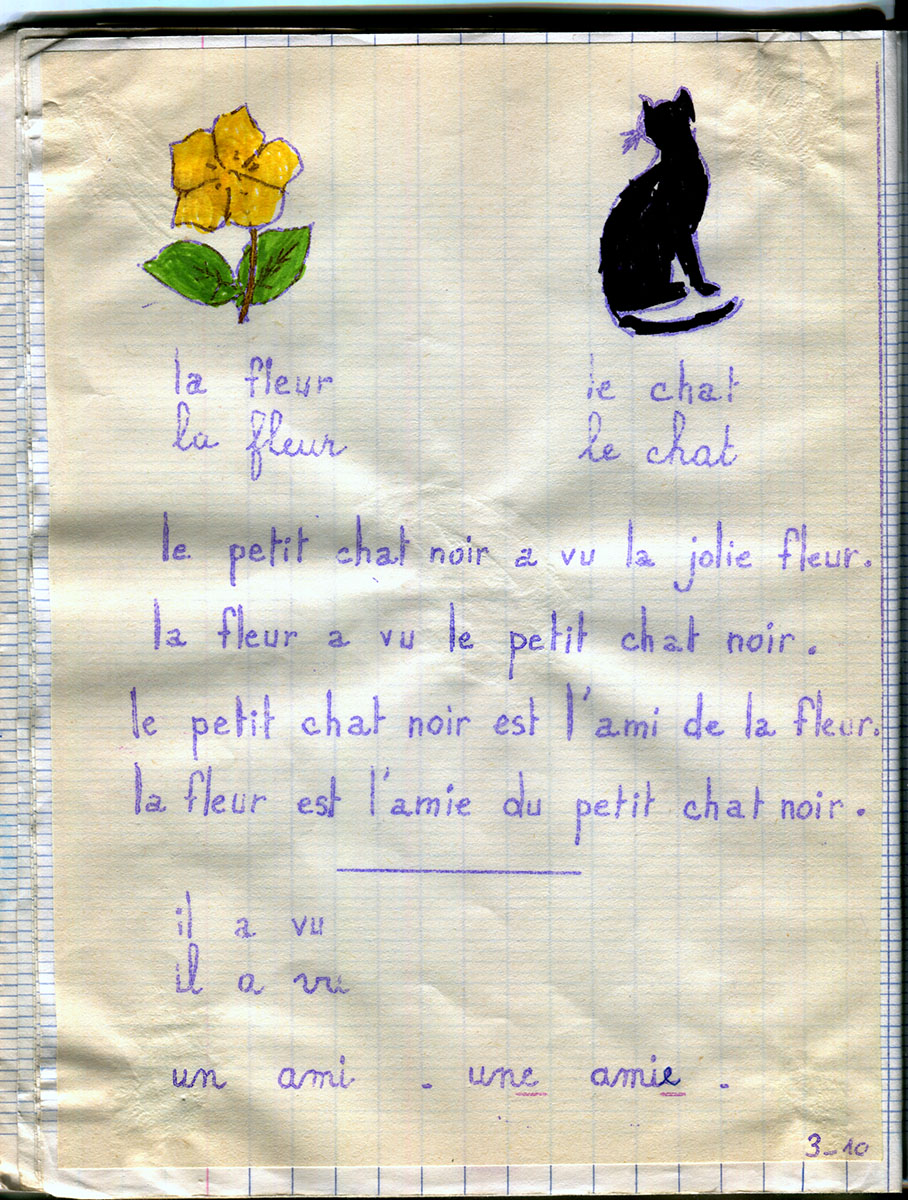 la fleur
le chat
la fleur
le chat
le petit chat noir a vu la jolie fleur.
la fleur a vu le petit chat noir.
le petit chat noir est l'ami de la fleur.
la fleur est l'amie du petit chat noir.
il a vu
il a vu
un ami . une amie .
3_10